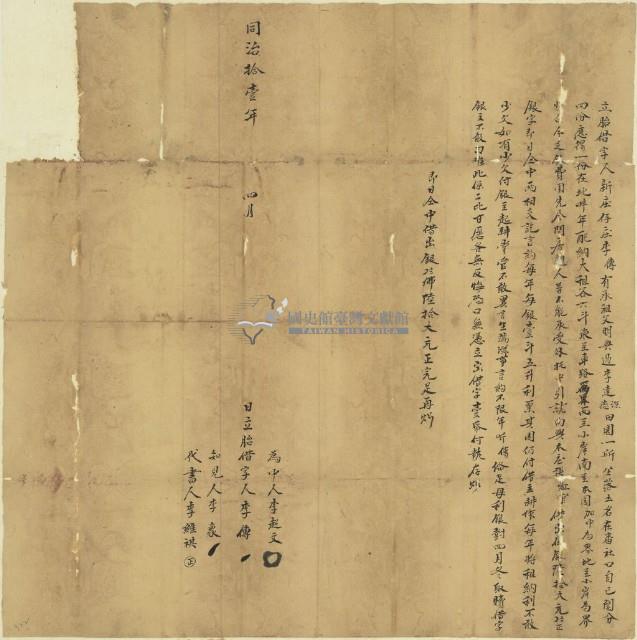 立胎借字人新庄仔庄李傳有承祖父明典過李建田園一所坐落土名在番社口自己鬮分
四份應得一份在北畔年配納大租谷六斗東至車路為界西至小岸南至本園加中為界北至小岸為界
今因乏費用先尽問房親人等不能承受外托中引就向與
銀字即日仝中兩相交訖言約每年每銀壹斗五升利粟其園仍付借主耕作每年將租納利不敢
少欠如有少欠付銀主起耕掌管不敢異言生端滋事言約不限年听傳俗足母利銀對四月冬取贖借字
銀主不敢刁難此係二比甘愿各無反悔恐口無憑立字借字壹紙付執存炤
即日仝中借出銀佛陸拾大元正完足再炤
同治拾壹年 四月 日立胎借字人李傳
為中人李起文
知見人李象
代書人李維祺
國史館臺灣文獻館
TAIWAN HISTORICA